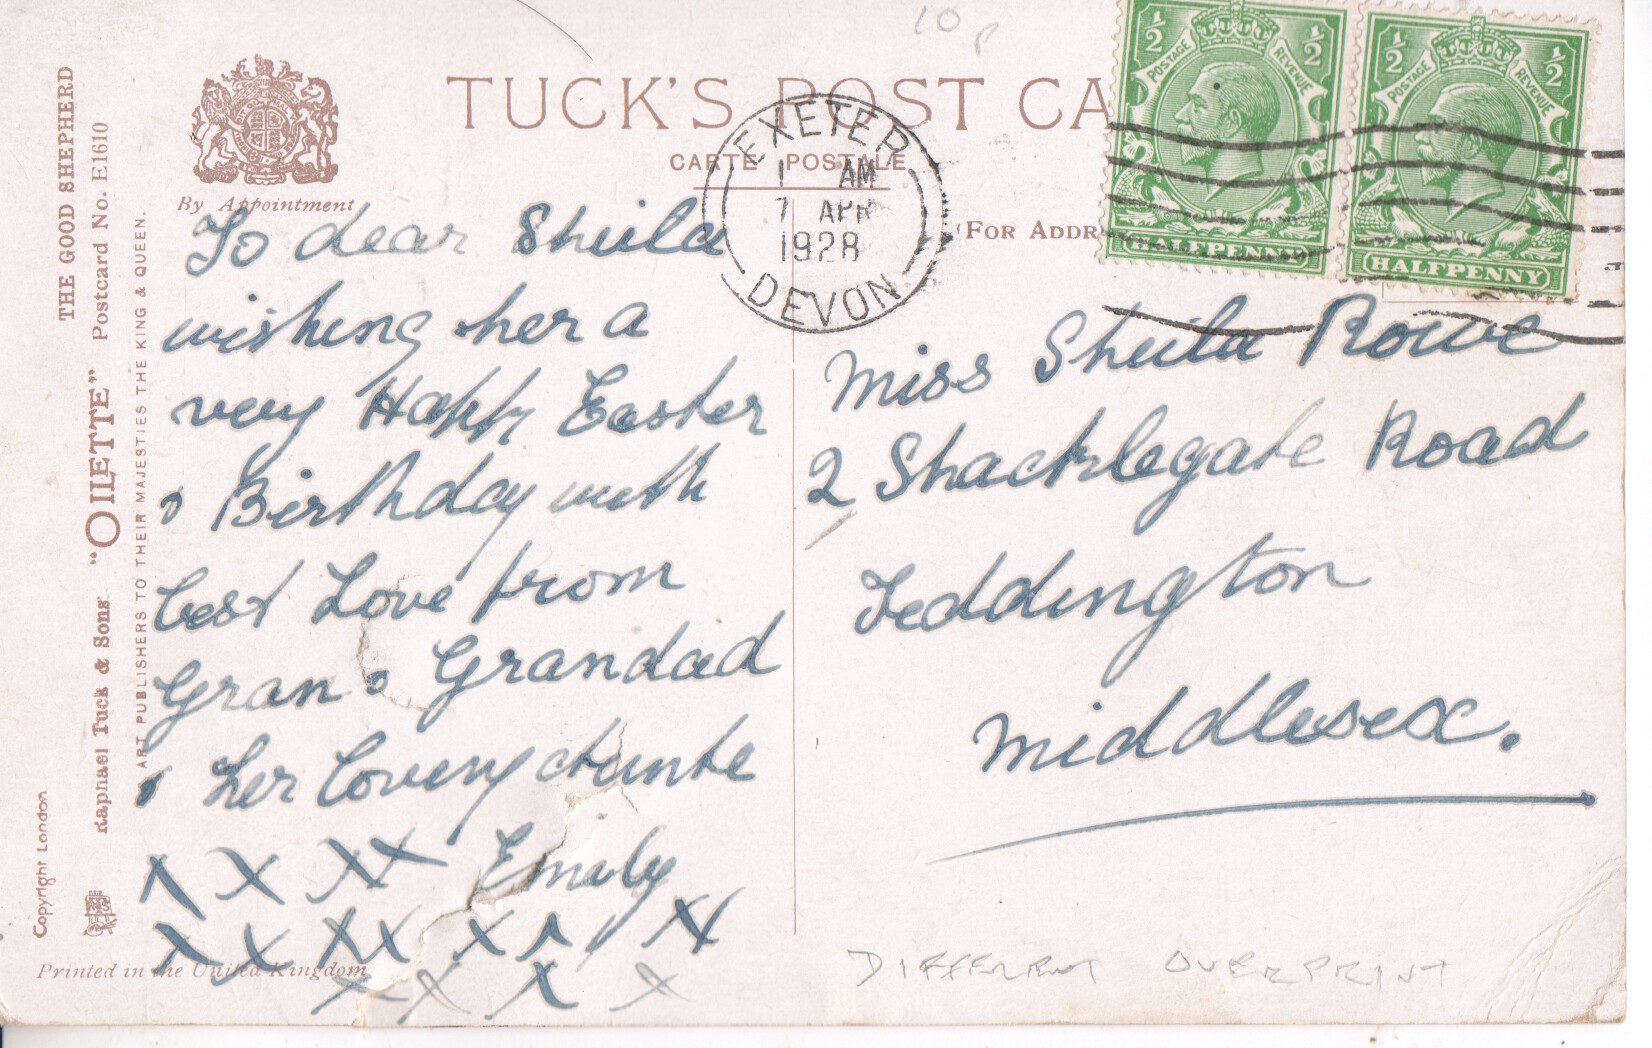 10p
TUCK'S POST CA
CARTE POSTALE
By Appointment
(FOR ADDR
EXETER
1 AM
7 APR
1928
DEVON
½ ½
POSTAGE REVENUE
HALFPENNY
½ ½
POSTAGE REVENUE
HALFPENNY
THE GOOD SHEPHERD
Postcard No. E1610
"OILETTE"
Raphael Tuck & Sons'
ART PUBLISHERS TO THEIR MAJESTIES THE KING & QUEEN.
Copyright London
To dear Sheila
wishing her a
very Happy Easter
& Birthday with
best Love from
Gran & Grandad
& her loving Aunte
X X XX Emily
X X XX X X X
X X X X
Printed in the United Kingdom
Miss Sheila Rowe
2 Shacklegate Road
Teddington
Middlesex.
DIFFERENT OVERPRINT